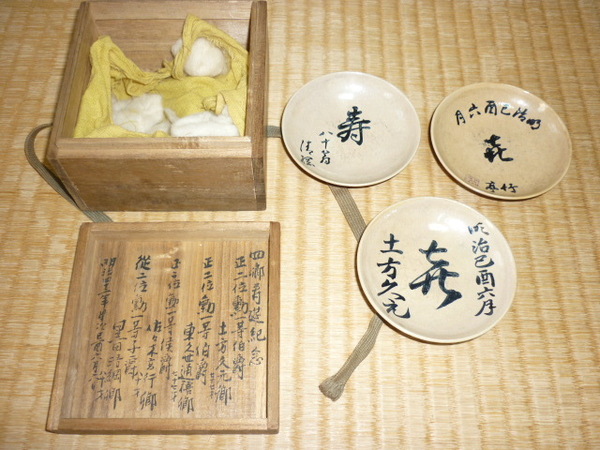 寿
八十翁
清綱
明治己酉六月
㐂
明治己酉六月
㐂
土方久元
四卿寿筵紀念
正二位勲一等伯爵
土方久元卿
正二位勲一等伯爵
東久世通禧卿
正二位勲一等侯爵
佐々木高行卿
従二位勲一等子爵
黒田清綱卿
明治四十二年